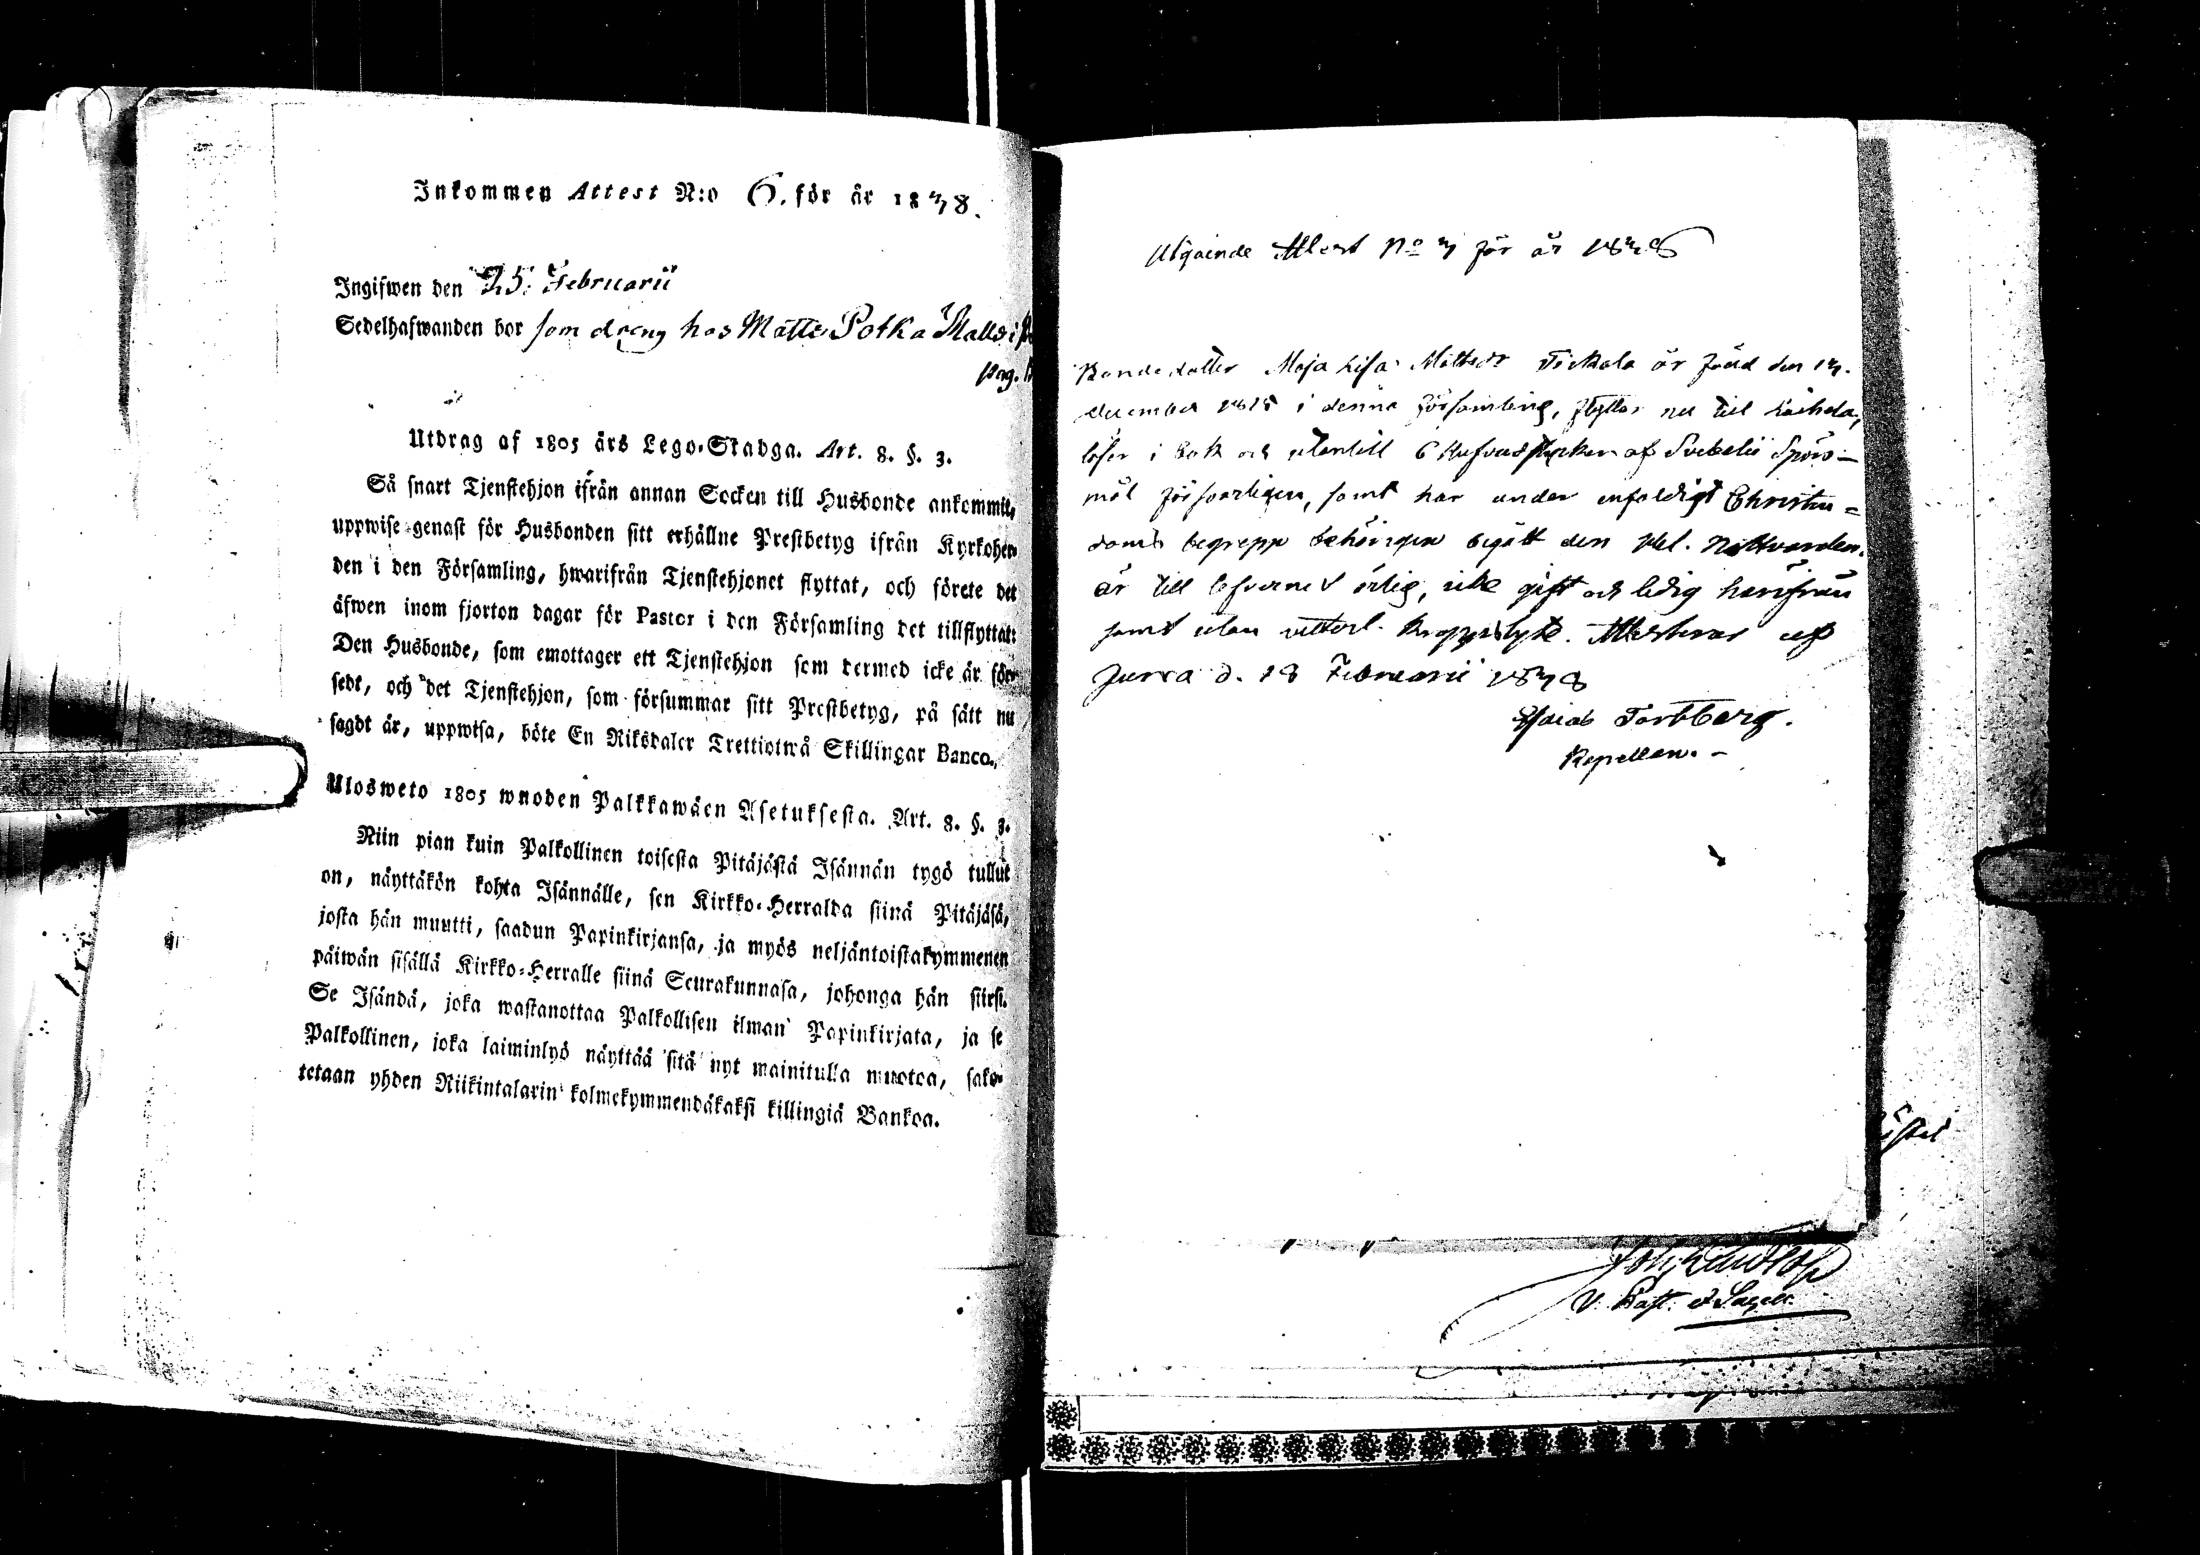 Inkommen Attest N:o 6. för år 1848.
Ingifwen den 25. Februarii
Sedelhafwanden bor som dreng hos Matts Potka Malls i
pag.
Utdrag af 1805 års Lego-Stadga. Art. 8. §. 3.
Så snart Tjenstehjon ifrån annan Socken till Husbonde ankommit,
uppwise genast för Husbonden sitt erhållne Prestbetyg ifrån Kyrkoher-
den i den Församling, hwarifrån Tjenstehjonet flyttat, och förete det
äfwen inom fjorton dagar för Pastor i den Församling det tillflyttat:
Den Husbonde, som emottager ett Tjenstehjon som dermed icke är för-
sedt, och det Tjenstehjon, som försummar sitt Prestbetyg, på sätt nu
sagdt är, uppwisa, böte En Riksdaler Trettiotwå Skillingar Banco.
Ulosweto 1805 wuoden Palkkawäen Asetuksesta. Art. 8. §. 3.
Niin pian kuin Palkollinen toisesta Pitäjästä Isännän tygö tullut
on, näyttäkön kohta Isännälle, sen Kirkko-Herralda siinä Pitäjäsä,
josta hän muutti, saadun Papinkirjansa, ja myös neljäntoistakymmenen
päiwän sisällä Kirkko-Herralle siinä Seurakunnasa, johonga hän siirsi.
Se Isändä, joka wastanottaa Palkollisen ilman Papinkirjata, ja se
Palkollinen, joka laiminlyö näyttää sitä nyt mainitulla muotoa, sako-
tetaan yhden Riikintalarin kolmekymmendäkaksi killingiä Bankoa.
Utgående Attest No 4 för år 1848
Bondedotter Maja Lisa Mattsdr är född den 14.
december i denna församling, flyttar nu till
läser i bok och utantill 6 Hufvudstycken af Svebelii Spörs-
mål försvarligen, samt har under enfaldigt Christen-
doms begrepp behörigen begått den Hel. Nattvarden.
är till lefvernet ärlig, icke gift och ledig härifrån
samt utan vetterl. kroppslyte. Attesteras af
Jurva d. 18 Februarii 1848
Kapellan.